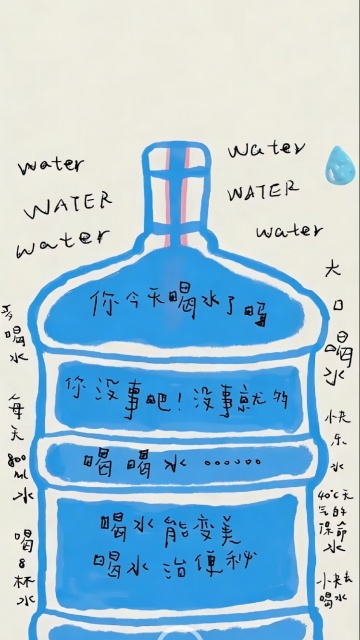 water
WATER
water
water
WATER
water
你今天喝水了吗
你没事吧！没事就多
喝喝水……
喝水能变美
喝水治便秘
多喝水
每天800ml水
喝8杯水
大口喝水
快乐水
40℃天气的保命水
快去喝水